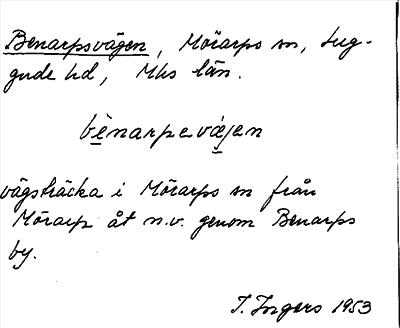 Benarpsvägen, Mörarps sn, Lug-
gude hd, Mhs län.
bènarpevä̀jen
vägsträcka i Mörarps sn från
Mörarp åt n.v. genom Benarps
by.
I. Ingers 1953